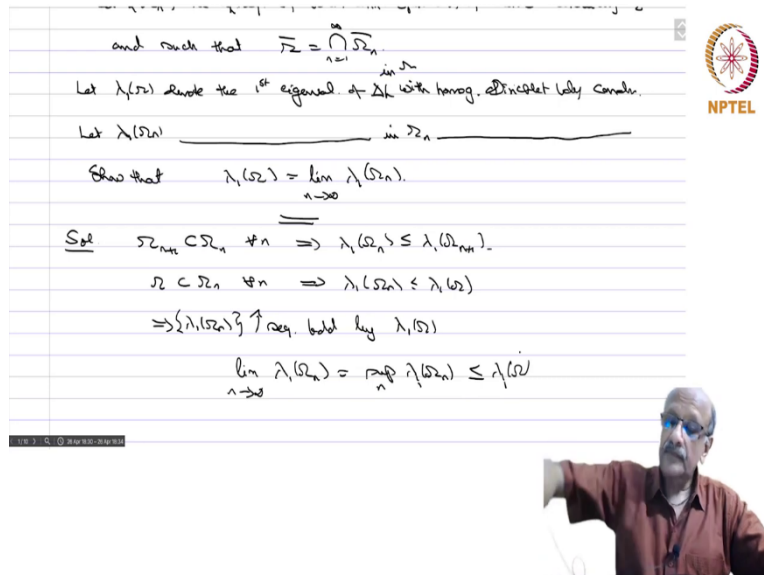 and such that Ω̄ = ⋂_{n=1}^{∞} Ω̄_n.
in Ω
Let λ₁(Ω) denote the 1st eigenval. of Δ with homog. Dirichlet bdry condn.
Let λ₁(Ω_n) ———————— in Ω_n ————————
Show that λ₁(Ω) = lim_{n→∞} λ₁(Ω_n).
Sol Ω_{n+1} ⊂ Ω_n ∀n ⟹ λ₁(Ω_n) ≤ λ₁(Ω_{n+1}).
Ω ⊂ Ω_n ∀n ⟹ λ₁(Ω_n) ≤ λ₁(Ω)
⟹ {λ₁(Ω_n)} ↑ seq. bdd by λ₁(Ω)
lim_{n→∞} λ₁(Ω_n) = sup_n λ₁(Ω_n) ≤ λ₁(Ω)
NPTEL